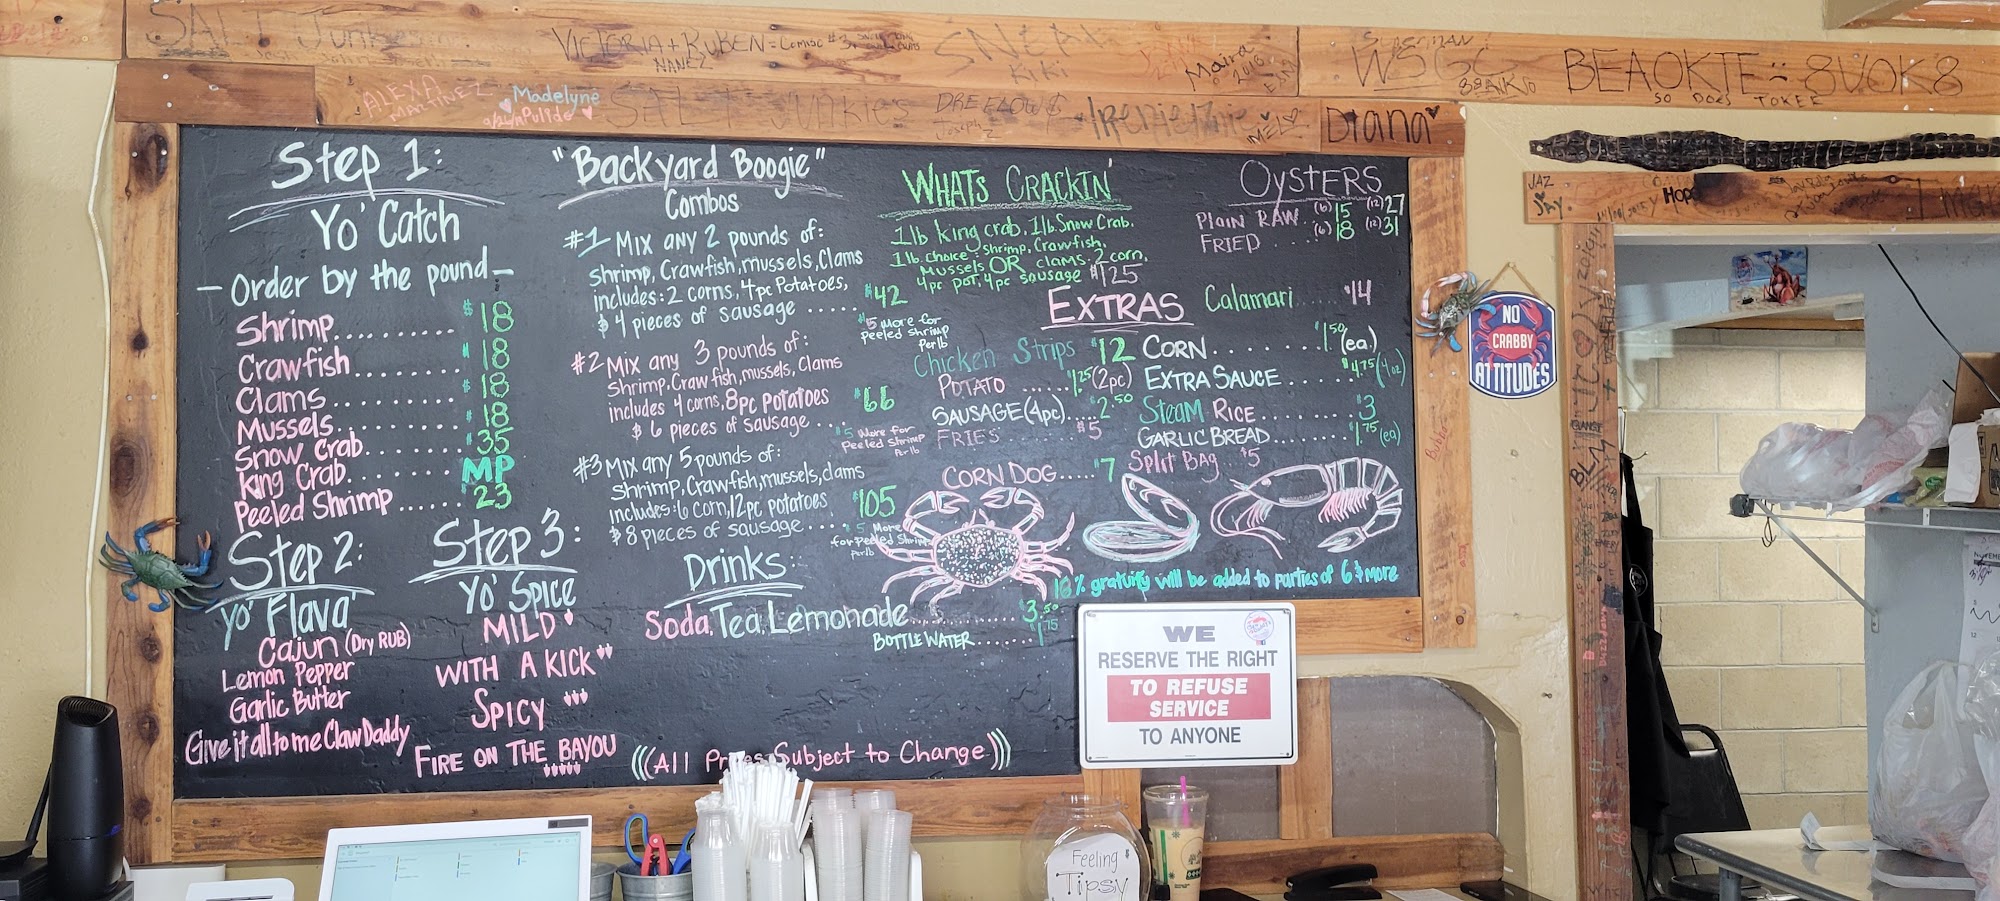 SALT Junkies
VICTORIA + RUBEN
NANEZ
KiKi
Maira
2016
WSGC
BEAOKTE
8UOK8
SO DOES TOKEE
ALEXA
MARTINEZ
Madelyne
Pulido
SALT JUNKIES
Joseph
MEL
Diana
JAZ
Jay
Hope
Step 1:
Yo' Catch
- Order by the pound -
Shrimp......... $18
Crawfish........ $18
Clams........ $18
Mussels........ $18
Snow Crab...... $35
King Crab....... MP
Peeled Shrimp..... $23
Step 2:
Yo' Flava'
Cajun (Dry RUB)
Lemon Pepper
Garlic Butter
Give it all to me Claw Daddy
Step 3:
Yo' Spice
MILD
WITH A KICK
SPICY
FIRE ON THE BAYOU
"Backyard Boogie"
Combos
#1 Mix any 2 pounds of:
Shrimp, Crawfish, mussels, Clams
includes: 2 corns, 4pc Potatoes,
& 4 pieces of sausage ..... $42
$5 More for
Peeled Shrimp
Per lb
#2 Mix any 3 pounds of:
Shrimp, Crawfish, mussels, Clams
includes 4 corns, 8pc Potatoes
& 6 pieces of sausage .... $66
$5 More for
Peeled Shrimp
Per lb
#3 Mix any 5 pounds of:
Shrimp, Crawfish, mussels, clams
includes: 6 corn, 12pc potatoes
& 8 pieces of sausage.... $105
$5 More
for Peeled Shrimp
per lb
Drinks:
Soda, Tea, Lemonade........ $3.50
BOTTLE WATER......... $1.75
(((All Prices Subject to Change)))
WHATS CRACKIN'
1lb king crab, 1lb Snow Crab.
1 lb. choice: Shrimp, Crawfish,
Mussels OR clams. 2 corn,
4pc pot, 4pc sausage $125
OYSTERS
PLAIN RAW.. (6) 15 (12) 27
FRIED .... (6) 18 (12) 31
EXTRAS
Calamari..... $14
Chicken Strips $12
POTATO ..... $1.25 (2pc)
SAUSAGE (4pc).... $2.50
FRIES $5
CORN DOG..... $7
CORN........ $1.50 (ea.)
EXTRA SAUCE...... $4.75 (4oz)
STEAM RICE......... $3
GARLIC BREAD........ $1.75 (ea)
Split BAg $5
18% gratuity will be added to parties of 6 & more
NO
CRABBY
ATTITUDES
WE
RESERVE THE RIGHT
TO REFUSE
SERVICE
TO ANYONE
Feeling
Tipsy